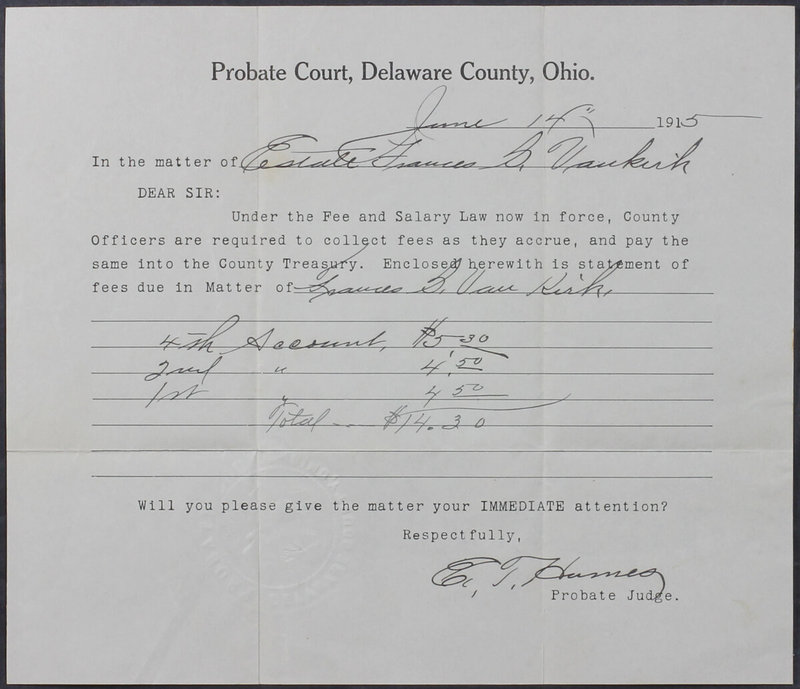 Probate Court, Delaware County, Ohio.
June 14" 1915
In the matter of Estate Frances G. Vankirk
DEAR SIR:
Under the Fee and Salary Law now in force, County
Officers are required to collect fees as they accrue, and pay the
same into the County Treasury. Enclosed herewith is statement of
fees due in Matter of Frances G. Van Kirk,
4th Account, $5 30
2nd " 4.50
1st " 4 50
Total -- $14.30
Will you please give the matter your IMMEDIATE attention?
Respectfully,
E. T. Humes
Probate Judge.